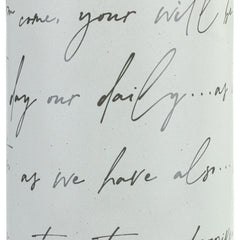 come, your will
day our daily...as
as we have also...